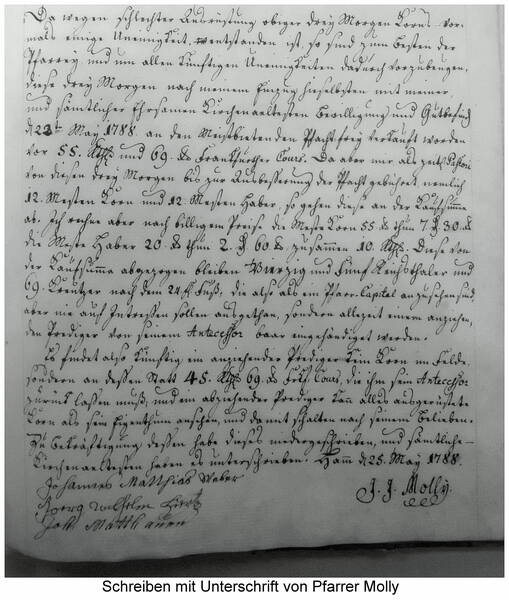 Da wegen schlechter Ausrüstung obiger drey Morgen Korns vor-
mals einige Uneinigkeit entstanden ist, so sind zum Besten der
Pfarrey und um allen künftigen Uneinigkeiten dadurch vorzubeugen,
diese drey Morgen nach meinem Einzug hieselbsten mit meiner
und sämtlicher Ehrsamen Kirchenaeltesten Bewilligung und Gutbefind
d 22t May 1788. an den Meistbietenden Pfacht frey verkauft worden
vor 55. Rthl und 69. Frankfurther Cours. Da aber mir als zeitl. Pastori
von diesen drey Morgen bis zur Ausbesserung der Pfacht gebühret nemlich
12. Mesten Korn und 12. Mesten Haber, so gehen diese an der Kaufsumme
ab. Ich rechne aber nach billigem Preise die Meste Korn 55. thun 7. 30.
die Meste Haber 20. thun 2. 60. zusammen 10. Rthl. Diese von
der Kaufsumma abgezogen bleiben Vierzig und fünf Reichsthaler und
69. Kreutzer nach dem 24 fl Fuß, die also als ein Pfarr-Capital anzusehen sind,
aber nie auf Interessen sollen ausgethan, sondern allezeit einem anziehen-
den Prediger von seinem Antecessor baar eingehändiget werden.
Es findet also künftig ein anziehender Prediger kein Korn im Felde,
sondern an dessen Statt 45. Rthl 69. Frkf. Cours, die ihm sein Antecessor
zurück lassen muß, und ein abziehender Prediger kann alles ausgerüstete
Korn als sein Eigenthum ansehen, und damit schalten nach seinem Belieben.
Zu Bekräftigung dessen habe dieses niedergeschrieben, und sämtliche
Kirchenaeltesten haben es unterschrieben. Hamm d 25. May 1788.
Johannes Matthias Weber
J. J. Molly.
Georg Wilhelm
Joh. Matth
Schreiben mit Unterschrift von Pfarrer Molly